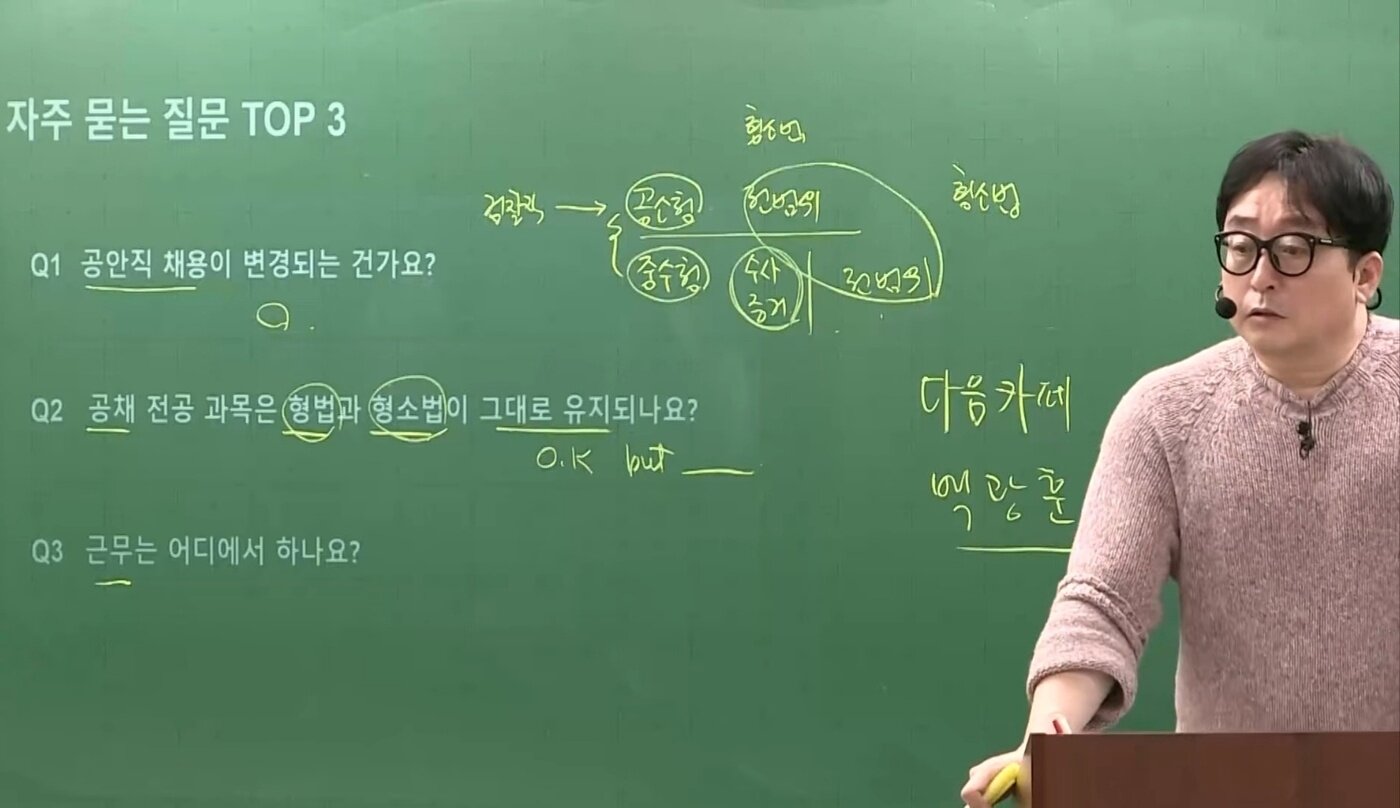 자주 묻는 질문 TOP 3
형소법
검찰직 → 공소청 헌법위 형소법
중수청 수사 증거 헌법위
Q1 공안직 채용이 변경되는 건가요?
Q2 공채 전공 과목은 형법과 형소법이 그대로 유지되나요?
O.K but
다음카페
백광훈
Q3 근무는 어디에서 하나요?